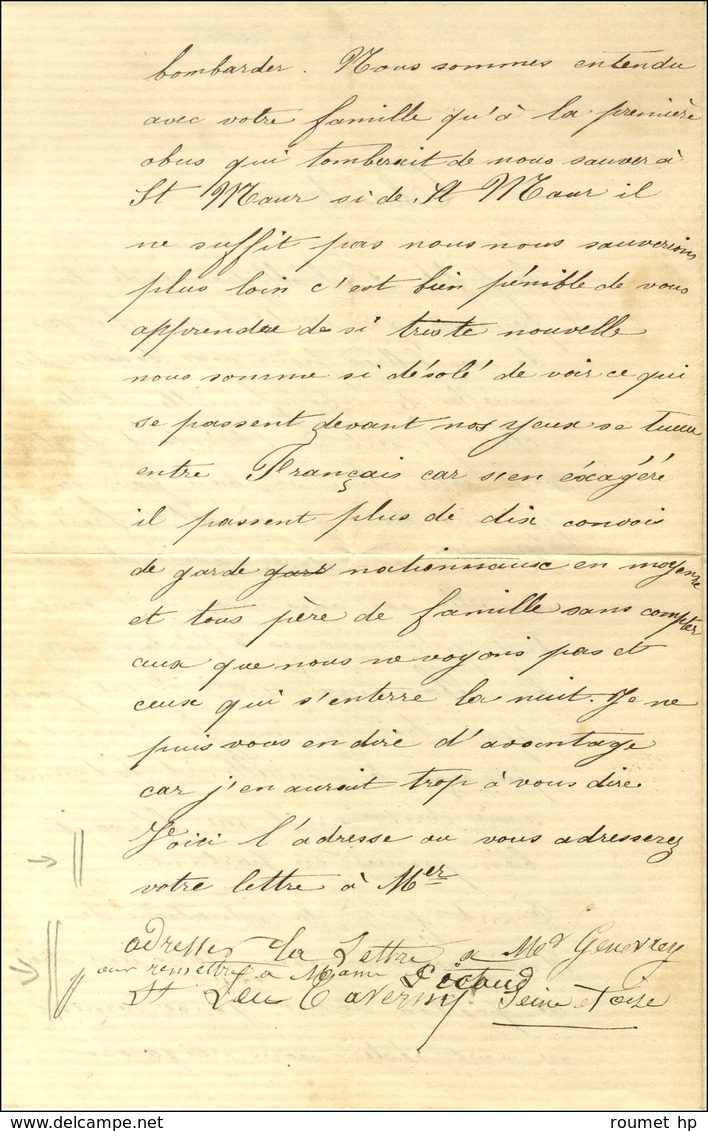 bombarder. Nous sommes entendu
avec votre famille qu'à la première
obus qui tomberait de nous sauver à
St Maur si de St Maur il
ne suffit pas nous nous sauverions
plus loin c'est bien pénible de vous
apprendre de si triste nouvelle
nous somme si désolé de voir ce qui
se passent devant nos yeux se tuer
entre Français car s'en éxagéré
il passent plus de dix convois
de garde nationnaux en moyenne
et tous père de famille sans compter
aux que nous ne voyons pas et
ceux qui s'enterre la nuit. Je ne
puis vous en dire d'avantage
car j'en aurait trop à vous dire
Voici l'adresse ou vous adresserez
votre lettre à Mer
adresser la Lettre a Md Genevrey
pour remettre a Mame Picaud
St Leu Taverny Seine et oise
roumet hp